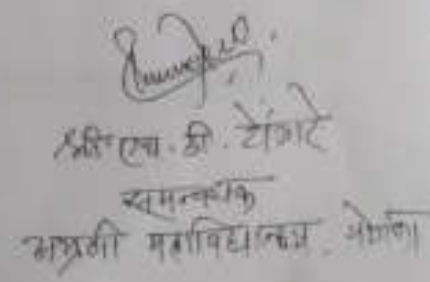 श्री एच. डी. टेंभरे
समन्वयक
अग्रणी महाविद्यालय